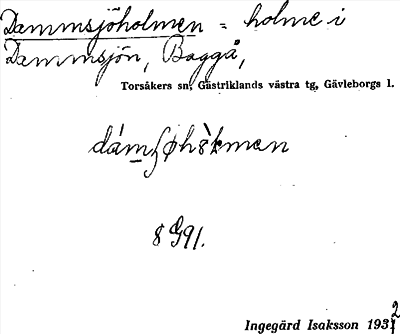 Dammsjöholmen = holme i
Dammsjön, Baggå,
Torsåkers sn, Gästriklands västra tg, Gävleborgs l.
8 G 91.
Ingegärd Isaksson 1932